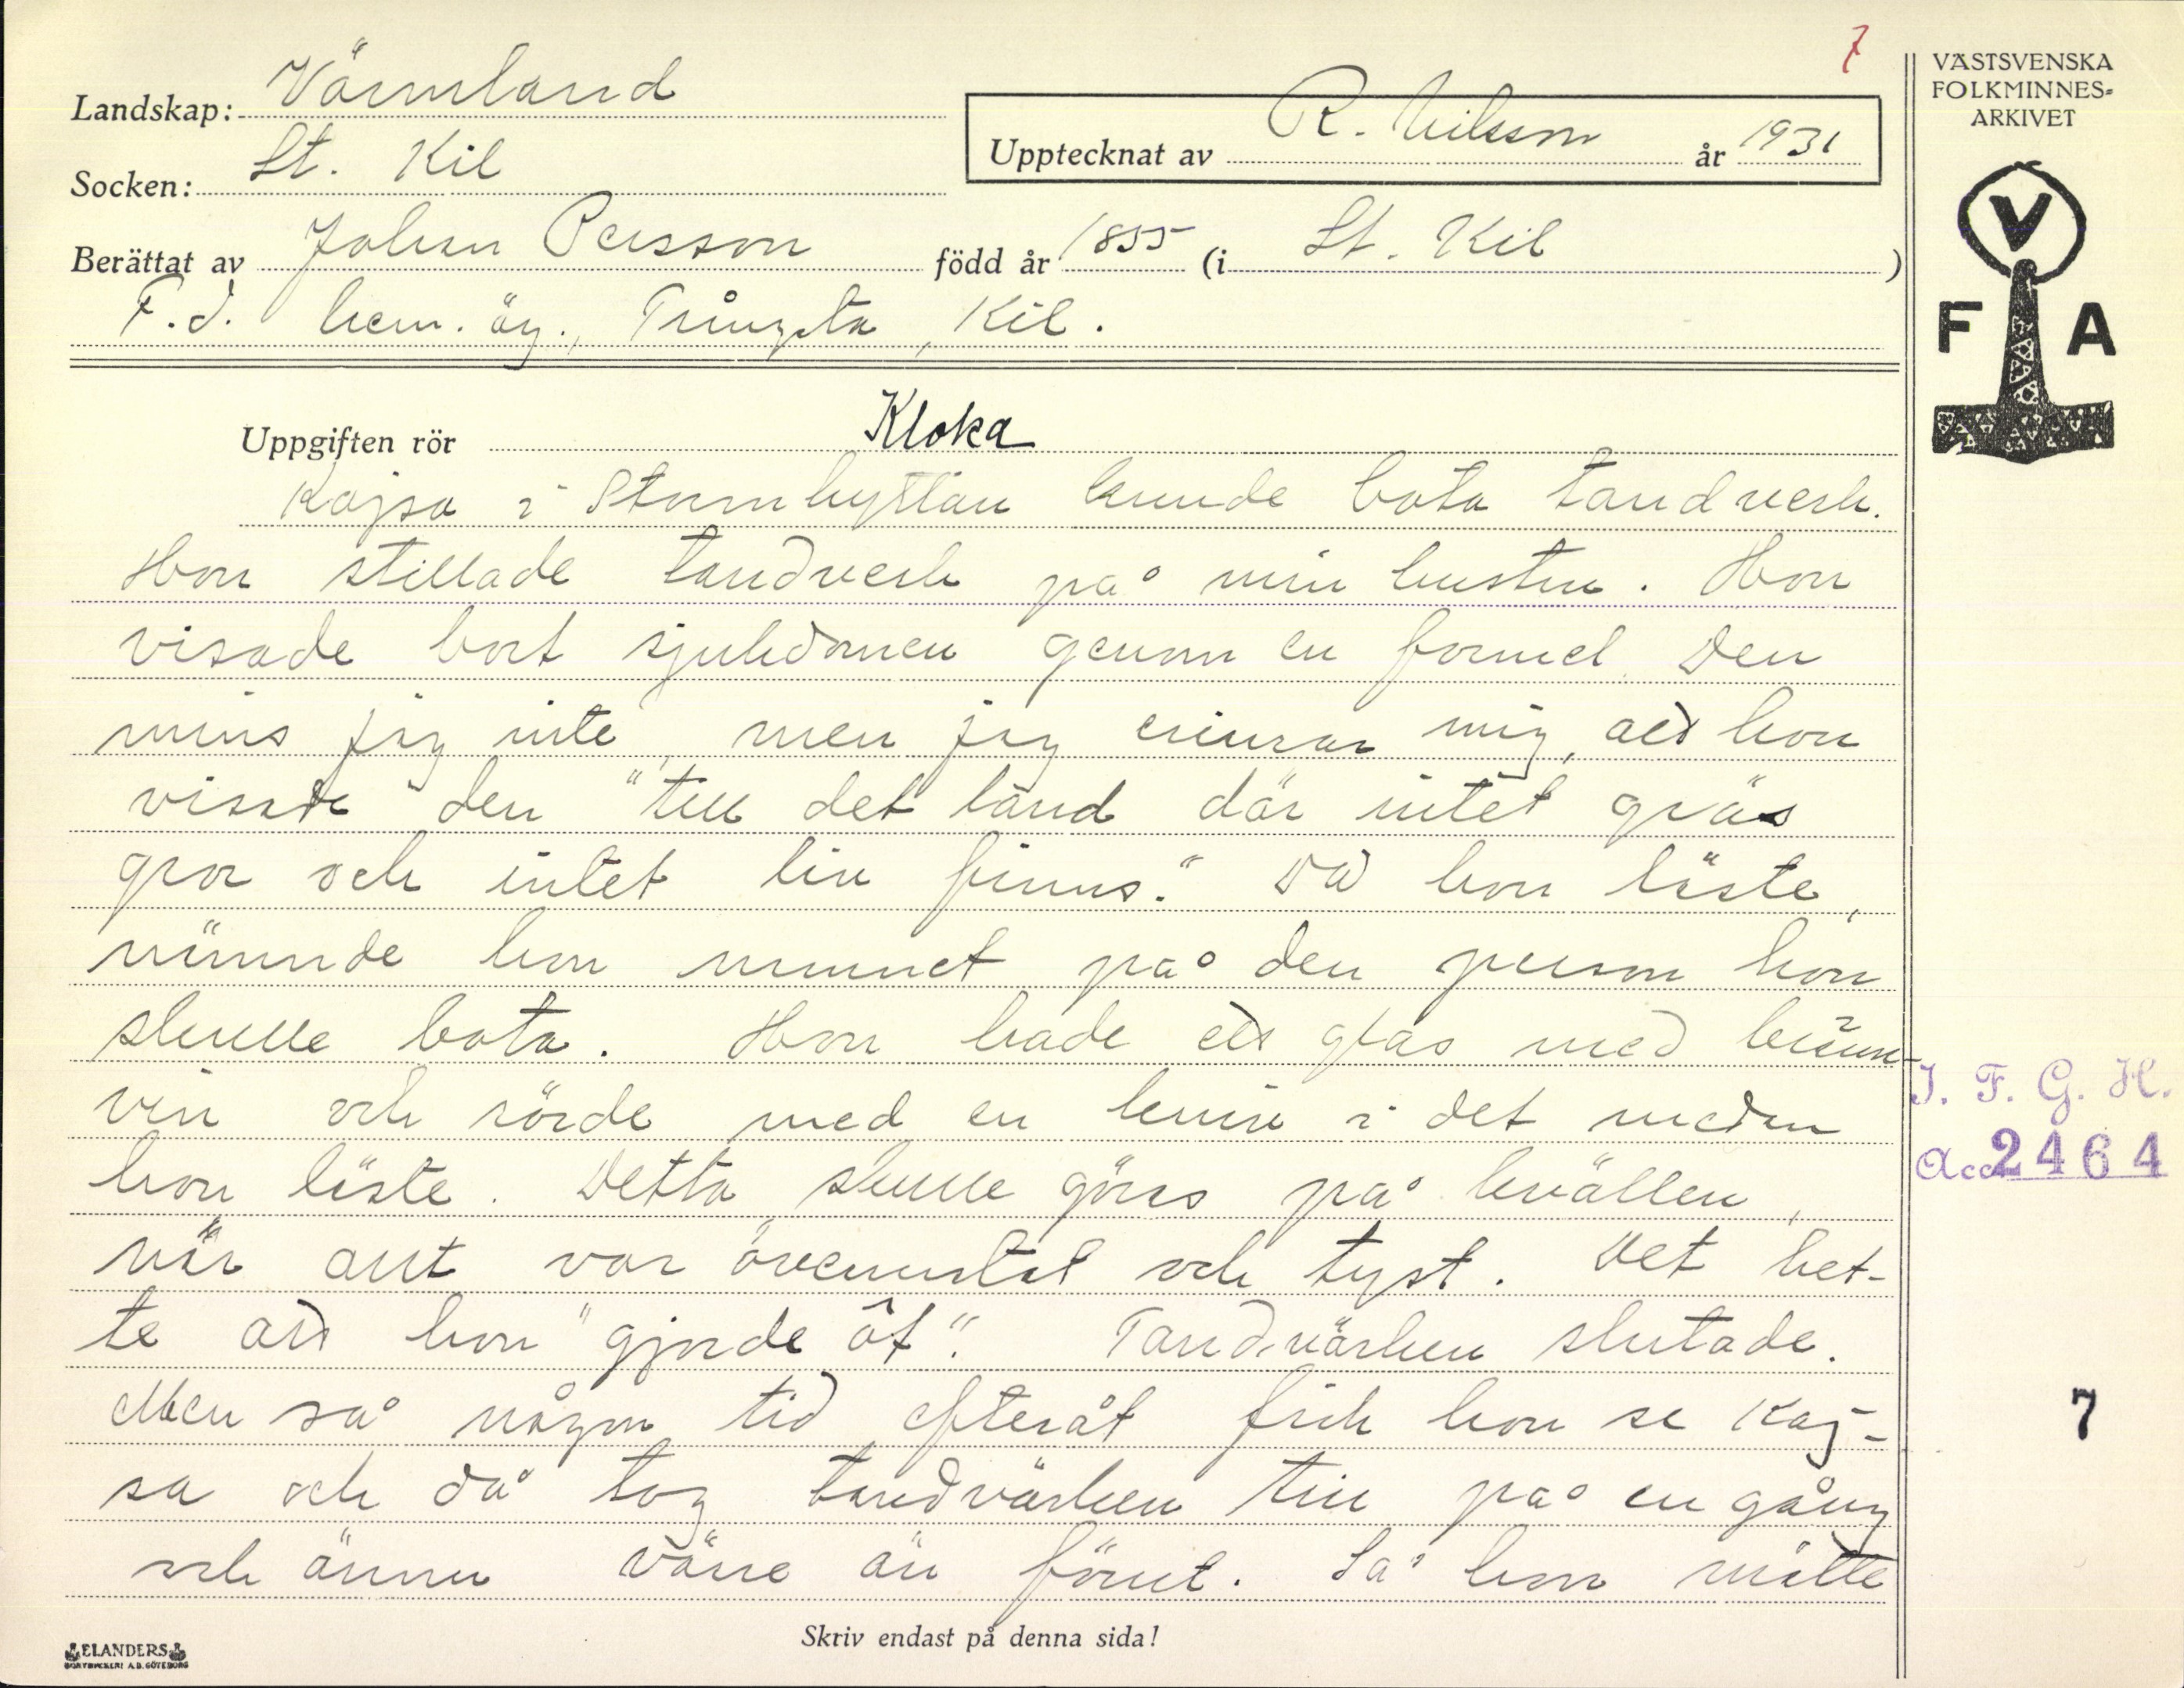 7
Landskap: Värmland
Socken: St. Kil
Upptecknat av R. Nilsson år 1931
Berättat av Johan Persson född år 1855 (i St. Kil)
F.d. hem. äg., Trångsta, Kil.
VÄSTSVENSKA
FOLKMINNES-
ARKIVET
V
F A
Uppgiften rör Kloka
Kajsa i Stömhyttan kunde bota tandverk.
Hon stillade tandverk på min hustru. Hon
visade bort sjukdomen genom en formel. Den
mins jag inte, men jag erinrar mig, att hon
visste den "till det land där intet gräs
gror och intet liv finns." Då hon läste,
nämnde hon namnet på den person hon
skulle bota. Hon hade ett glas med bränn-
vin och rörde med en kniv i det medan
hon läste. Detta skulle göras på kvällen,
när allt var överenstat och tyst. Det het-
te att hon "gjorde åt". Tandvärken slutade.
Men så någon tid efteråt fick hon se Kaj-
sa och då tog tandvärken till på en gång
och ännu värre än förut. Så hon måtte
Skriv endast på denna sida!
I. F. G. H.
Acc 2464
7
ELANDERS
BOKTRYCKERI A.B. GÖTEBORG